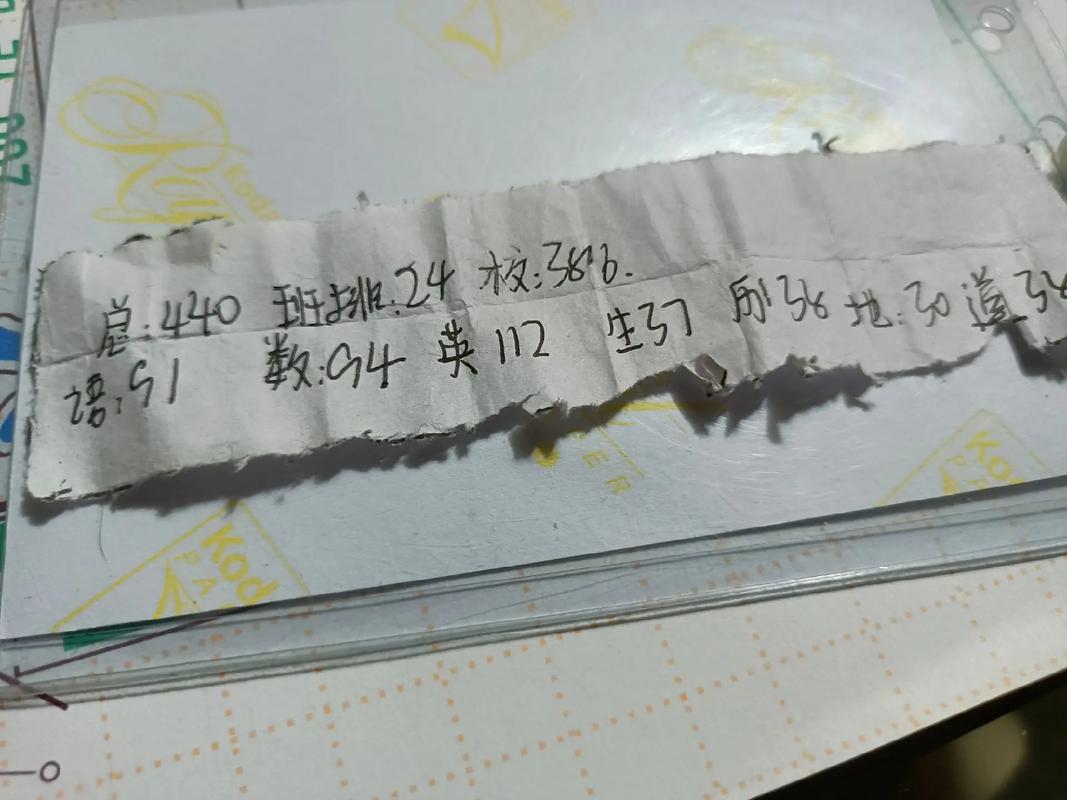 总:440 班排:24 校:386.
语:91 数:94 英 112 生37 历38 地:30 道38
Kod
PA
Kod